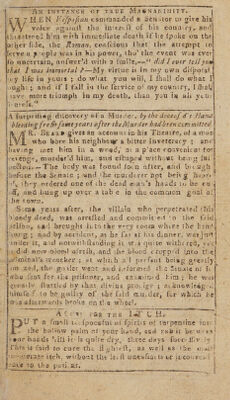 AN INSTANCE OF TRUE MAGNANIMITY.
WHEN Vespasian commanded a Senator to give his
voice against the interest of his country, and
threatened him with immediate death if he spoke on the
other side, the Roman, conscious that the attempt to
serve a people was in his power, tho' the event was ever
so uncertain, answer'd with a smile,—"did I ever tell you
that I was immortal? My virtue is in my own disposal,
my life in yours; do what you will, I shall do what I
ought; and if I fall in the service of my country, I shall
have more triumph in my death, than you in all your
A surprising discovery of a Murder, by the dead hand
bleeding fresh some years after the Murder had been committed
gives an account in his Theatre, of a man
who bore his neighbour a bitter inveteracy; and
having met him in a wood, in a place convenient for
revenge, murder'd him, and escaped without being
The body was found soon after, and brought
before the Senate; and the murderer not being
they ordered one of the dead man's hands to be
and hung up over a table in the common gaol of
the town.
Some years after, the villain who perpetrated this
bloody deed, was arrested and committed to the said
prison, and brought into the very room where the hand
hung; and by accident, as he sat at his dinner, was just
under it, and notwithstanding it was quite withered, yet
did now bleed afresh, and the blood dropp'd into the
criminal's trencher; at which all present being greatly
the gaoler went and inform'd the Senate of it
who sent for the prisoner, and examined him; he was
greatly startled by this divine prodigy; acknowledg'd
himself to be guilty of the said murder, for which he
was afterwards broke on the wheel.
A CURE for the ITCH.
PUT a small teaspoonful of spirits of turpentine into
the hollow palm of your hand, and rub it between
your hands 'till it is quite dry, three days
This is said to cure the slightest, as well as the most
itch, without the least uneasiness or
to the patient.